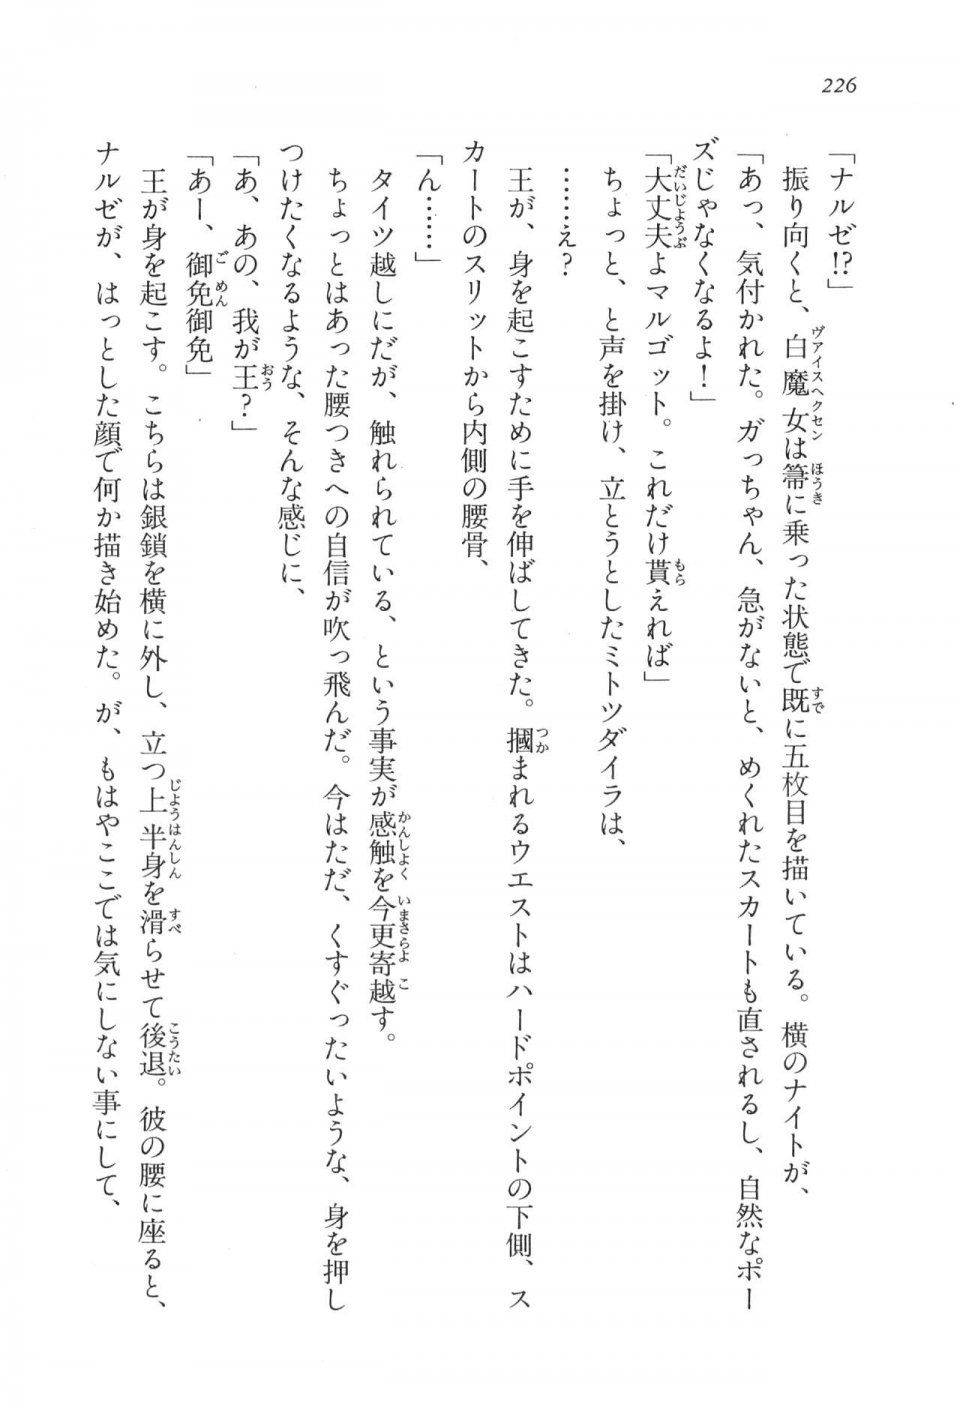 226
「ナルゼ!?」
　振り向くと、白魔女は箒に乗った状態で既に五枚目を描いている。横のナイトが、
「あっ、気付かれた。ガっちゃん、急がないと、めくれたスカートも直されるし、自然なポー
ズじゃなくなるよ！」
「大丈夫よマルゴット。これだけ貰えれば」
　ちょっと、と声を掛け、立とうとしたミトツダイラは、
　……え？
　王が、身を起こすために手を伸ばしてきた。摑まれるウエストはハードポイントの下側、ス
カートのスリットから内側の腰骨、
「ん……」
　タイツ越しにだが、触れられている、という事実が感触を今更寄越す。
　ちょっとはあった腰つきへの自信が吹っ飛んだ。今はただ、くすぐったいような、身を押し
つけたくなるような、そんな感じに、
「あ、あの、我が王？」
「あー、御免御免」
　王が身を起こす。こちらは銀鎖を横に外し、立つ上半身を滑らせて後退。彼の腰に座ると、
ナルゼが、はっとした顔で何か描き始めた。が、もはやここでは気にしない事にして、